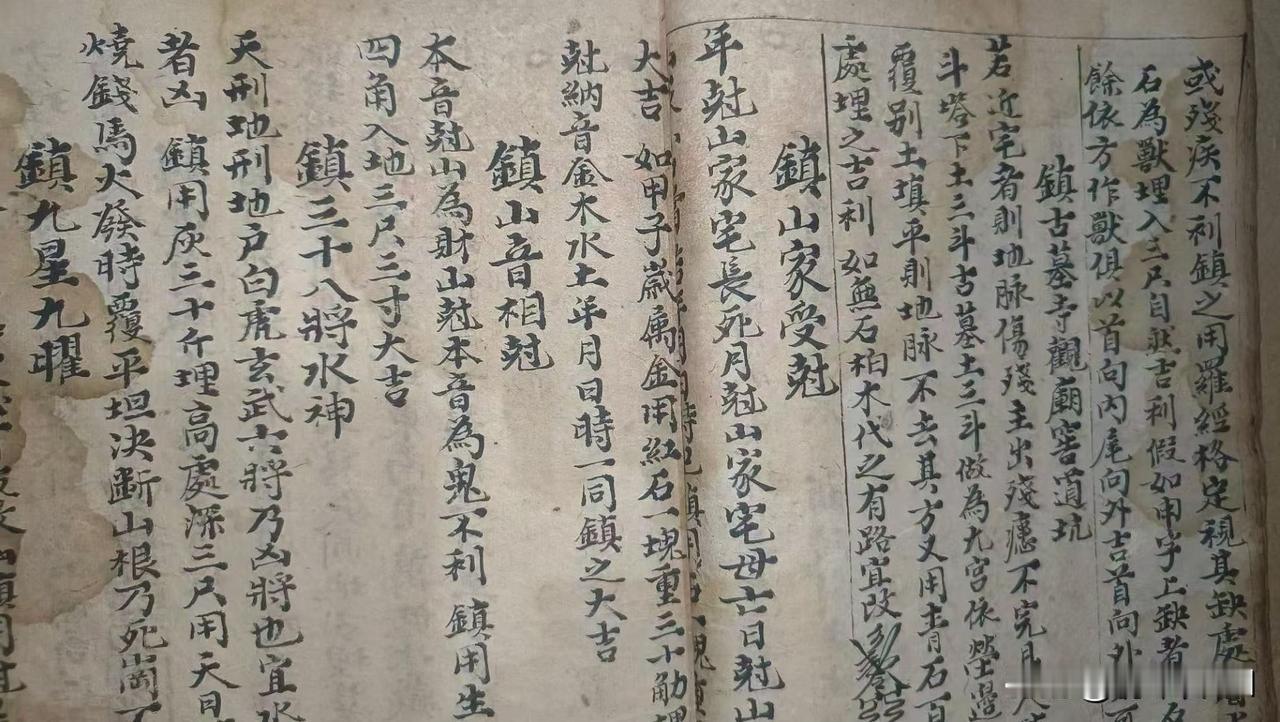 或殘疾不利鎮之用羅經格定視其缺處
石為獸埋入三尺自然吉利假如申字上缺者
餘依方作獸俱以首向內尾向外吉首向外
鎮古墓寺觀廟窖道坑
若近宅者則地脉傷殘主出殘
不完
斗塔下土三斗古墓土三斗做為九宮依
覆別土填平則地脉不去其方又用青石一
處埋之吉利如無石柏木代之有路宜改
鎮山家受尅
年尅山家宅長死月尅山家宅母亡日尅山
大吉如甲子歲属金用紅石一塊重三十觔埋
尅納音金木水土年月日時一同鎮之大吉
鎮山音相尅
本音尅山為財山尅本音為鬼不利鎮用生
四角入地三尺三寸大吉
鎮三十八將水神
天刑地刑地户白虎玄武六將乃凶將也宜水
者凶鎮用灰三十斤埋高處深三尺用天日
燒錢馬大發時覆平坦决斷山根乃死崗
鎮九星九曜